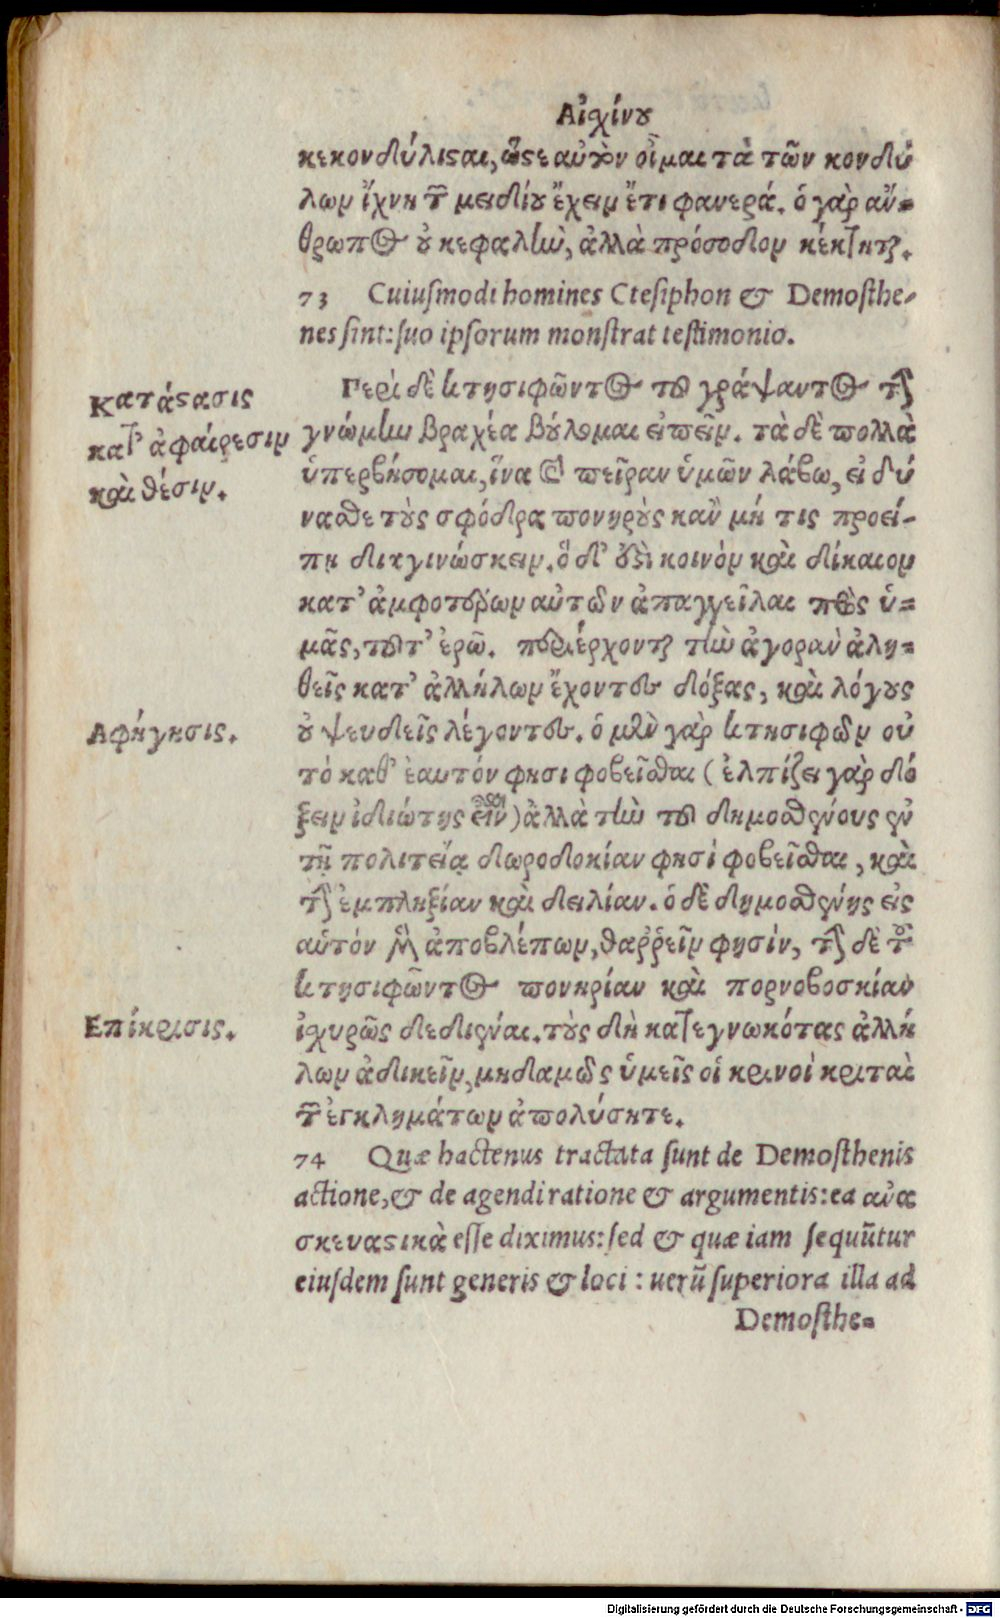 Αἰχίνου
κεκονδύλισαι, ὥστε αὐτὸν οἶμαι τὰ τῶν κονδύ
λων ἴχνη τῶν μειδίου ἔχειν ἔτι φανερά. ὁ γὰρ ἄν-
θρωπος οὐ κεφαλὴν, ἀλλὰ πρόσοδον κέκτηται.
73 Cuiuſmodi homines Cteſiphon & Demoſthe-
nes ſint: ſuo ipſorum monſtrat teſtimonio.
Κατάστασις
κατ' ἀφαίρεσιν
καὶ θέσιν.
Περὶ δὲ κτησιφῶντος τοῦ γράψαντος τὴν
γνώμην βραχέα βούλομαι εἰπεῖν. τὰ δὲ πολλὰ
ὑπερβήσομαι, ἵνα καὶ πεῖραν ὑμῶν λάβω, εἰ δύ
νασθε τοὺς σφόδρα πονηροὺς κἂν μή τις προεί-
πῃ διαγινώσκειν. ὃ δ' ἐστὶ κοινὸν καὶ δίκαιον
κατ' ἀμφοτέρων αὐτῶν ἀπαγγεῖλαι πρὸς ὑ-
μᾶς, τοῦτ' ἐρῶ. περιέρχονται τὴν ἀγορὰν ἀλη-
θεῖς κατ' ἀλλήλων ἔχοντες δόξας, καὶ λόγους
Αφήγησις.
οὐ ψευδεῖς λέγοντες. ὁ μὲν γὰρ κτησιφῶν οὐ
τὸ καθ' ἑαυτόν φησι φοβεῖσθαι (ἐλπίζει γὰρ δό
ξειν ἰδιώτης εἶναι) ἀλλὰ τὴν τοῦ δημοσθένους ἐν
τῇ πολιτείᾳ δωροδοκίαν φησὶ φοβεῖσθαι, καὶ
τὴν ἐμπληξίαν καὶ δειλίαν. ὁ δὲ δημοσθένης εἰς
αὑτόν μὲν ἀποβλέπων, θαῤῥεῖν φησίν, τὴν δὲ τοῦ
κτησιφῶντος πονηρίαν καὶ πορνοβοσκίαν
Επίκρισις.
ἰχυρῶς δεδιέναι. τοὺς δὴ κατεγνωκότας ἀλλή
λων ἀδικεῖν, μηδαμῶς ὑμεῖς οἱ κοινοὶ κριταὶ
τῶν ἐγκλημάτων ἀπολύσητε.
74 Quæ hactenus tractata ſunt de Demoſthenis
actione, & de agendi ratione & argumentis: ea ἀνα
σκευαστικὰ eſſe diximus: ſed & quæ iam ſequūtur
eiuſdem ſunt generis & loci : uerū ſuperiora illa ad
Demoſthe-
Digitalisierung gefördert durch die Deutsche Forschungsgemeinschaft - DFG